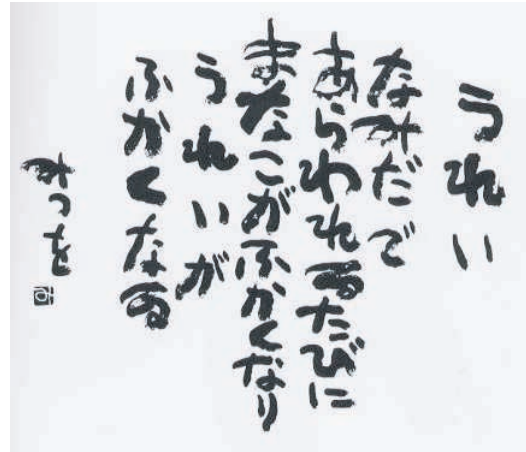 うれい
なみだで
あらわれるたびに
まなこがふかくなり
うれいが
ふかくなる
みつを